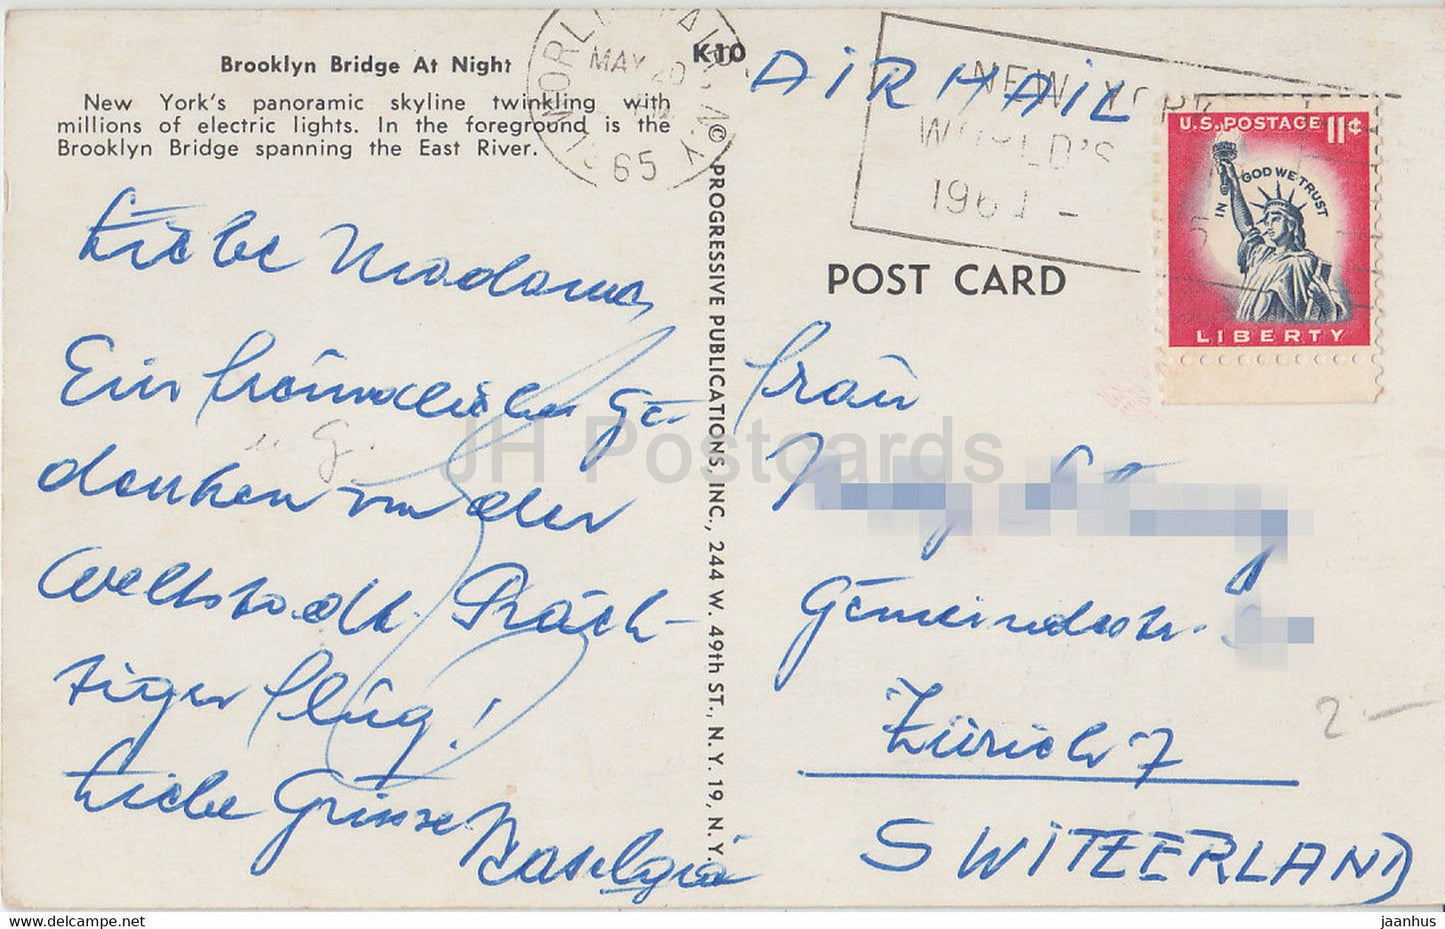 Brooklyn Bridge At Night
New York's panoramic skyline twinkling with
millions of electric lights. In the foreground is the
Brooklyn Bridge spanning the East River.
K10
© PROGRESSIVE PUBLICATIONS, INC., 244 W. 49th ST., N. Y. 19, N. Y.
MAY 20
65
AIRMAIL
NEW YORK
WORLD'S
196
U.S. POSTAGE 11¢
IN GOD WE TRUST
LIBERTY
POST CARD
Liebe Madame,
Ein freundliches Ge-
denken von der
Weltstadt. Präch-
tiger Flug!
Liebe Grüsse
Frau
Gemeindestr.
Zürich 7
SWITZERLAND
2.-
JH Postcards
https://www.delcampe.net
jaanhus